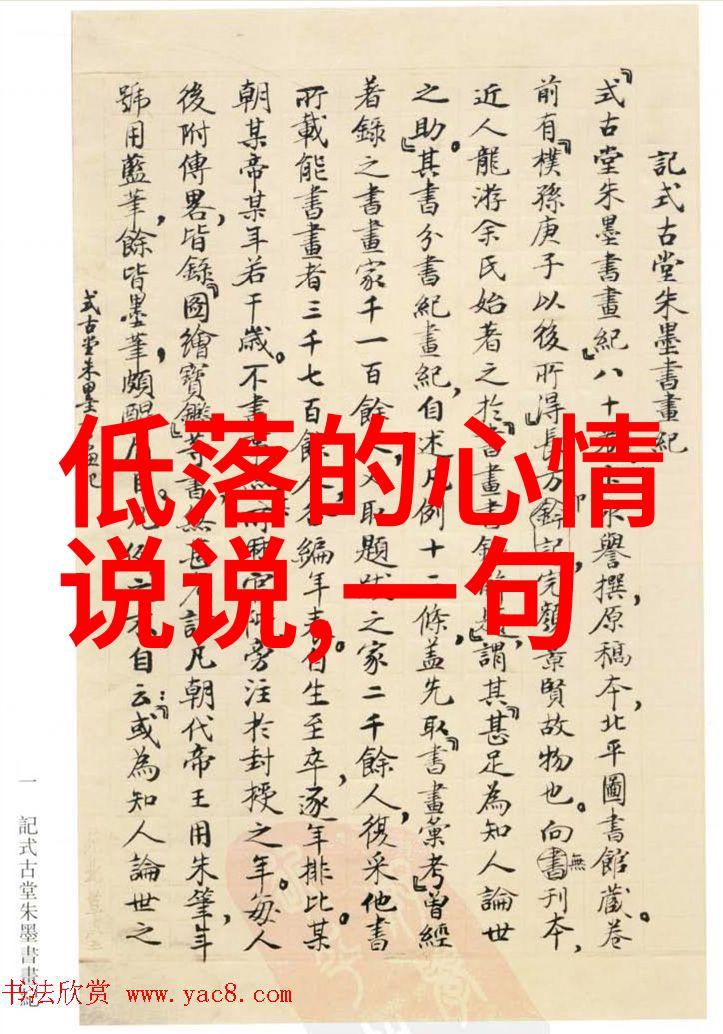 記式古堂朱墨書畫紀
『式古堂朱墨書畫紀』八十卷譽撰,原稿本,北平圖書館藏。卷
前有『樸孫庚子以後所得』長方印記,完顏景賢故物也。向無刊本,
近人龍游余氏始著之於『書畫書錄解題』,謂其『甚足為知人論世
之助。』其書分書紀畫紀,自述凡例十二條,蓋先取『書畫彙考』曾經
著錄之書畫家千一百餘人,又取題跋之家二千餘人,復采他書
所載能書畫者三千七百餘人,各編年表。自生至卒,逐年排比某
朝某帝某年若干歲。不書旁注於封授之年。每人
後附傳畧,皆錄『圖繪寶鑑』等書,無甚凡朝代帝王用朱筆,年
號用藍筆,餘皆墨筆,頗醒自云:『或為知人論世之
式古堂朱墨書畫紀
低落的心情
说说,一句
一 記式古堂朱墨書畫紀
书法欣赏 www.yac8.com